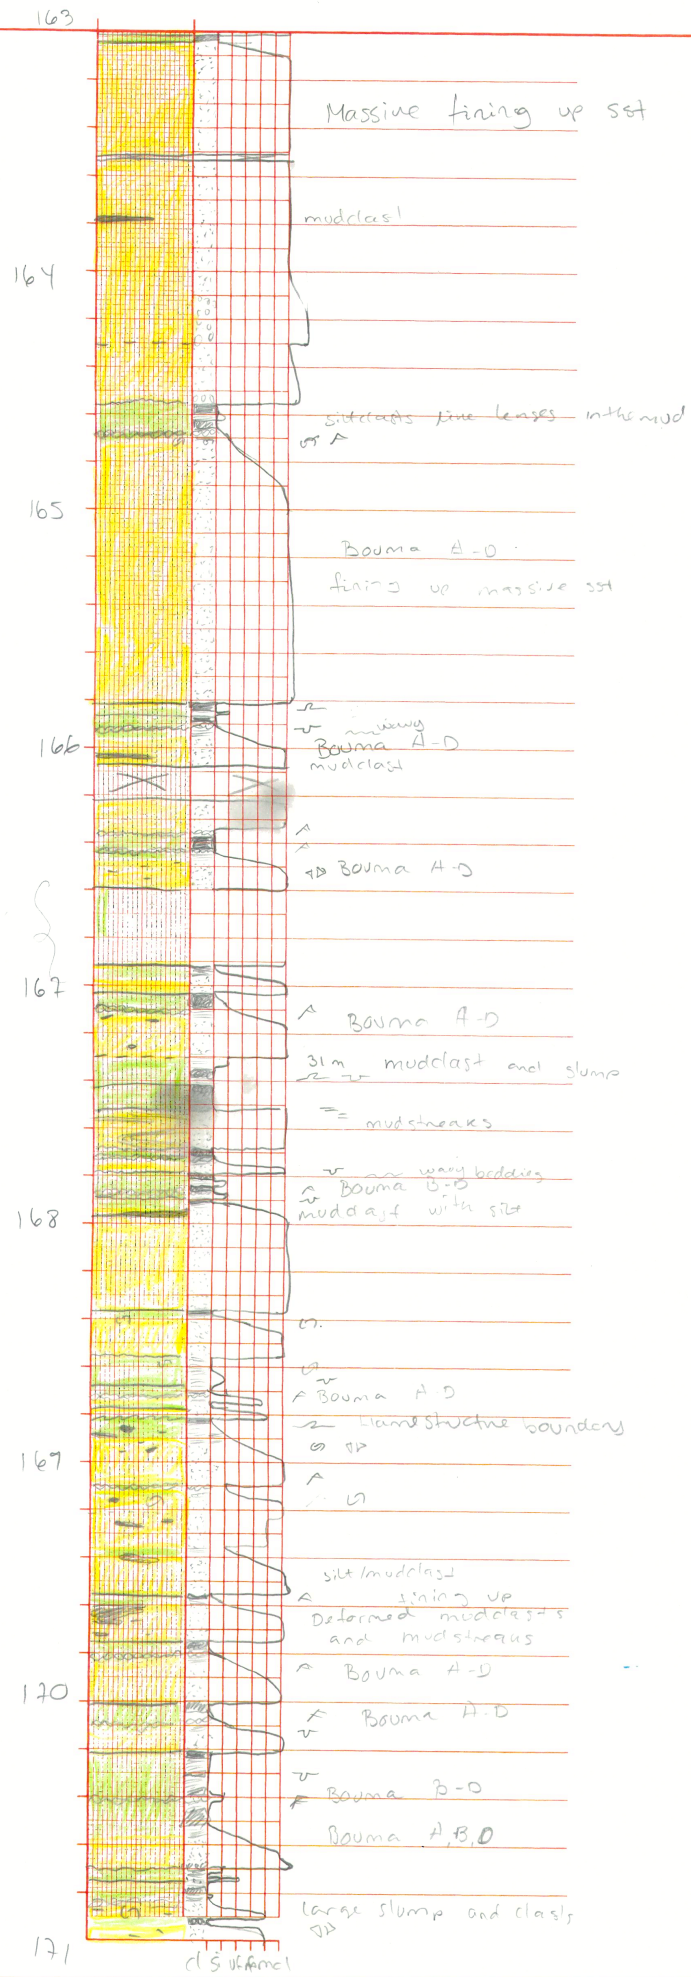 163
Massive fining up sst
mudclast
164
siltclasts line lenses in the mud
165
Bouma A-D
fining up massive sst
wavy
166
Bouma A-D
mudclast
Bouma A-D
167
Bouma A-D
31m mudclast and slump
mudstreaks
wavy bedding
Bouma B-D
mudclast with silt
168
Bouma A-D
flamestructure boundary
169
silt/mudclast
fining up
Deformed mudclasts
and mudstreaks
Bouma A-D
170
Bouma A-D
Bouma B-D
Bouma A,B,D
large slump and clasts
171